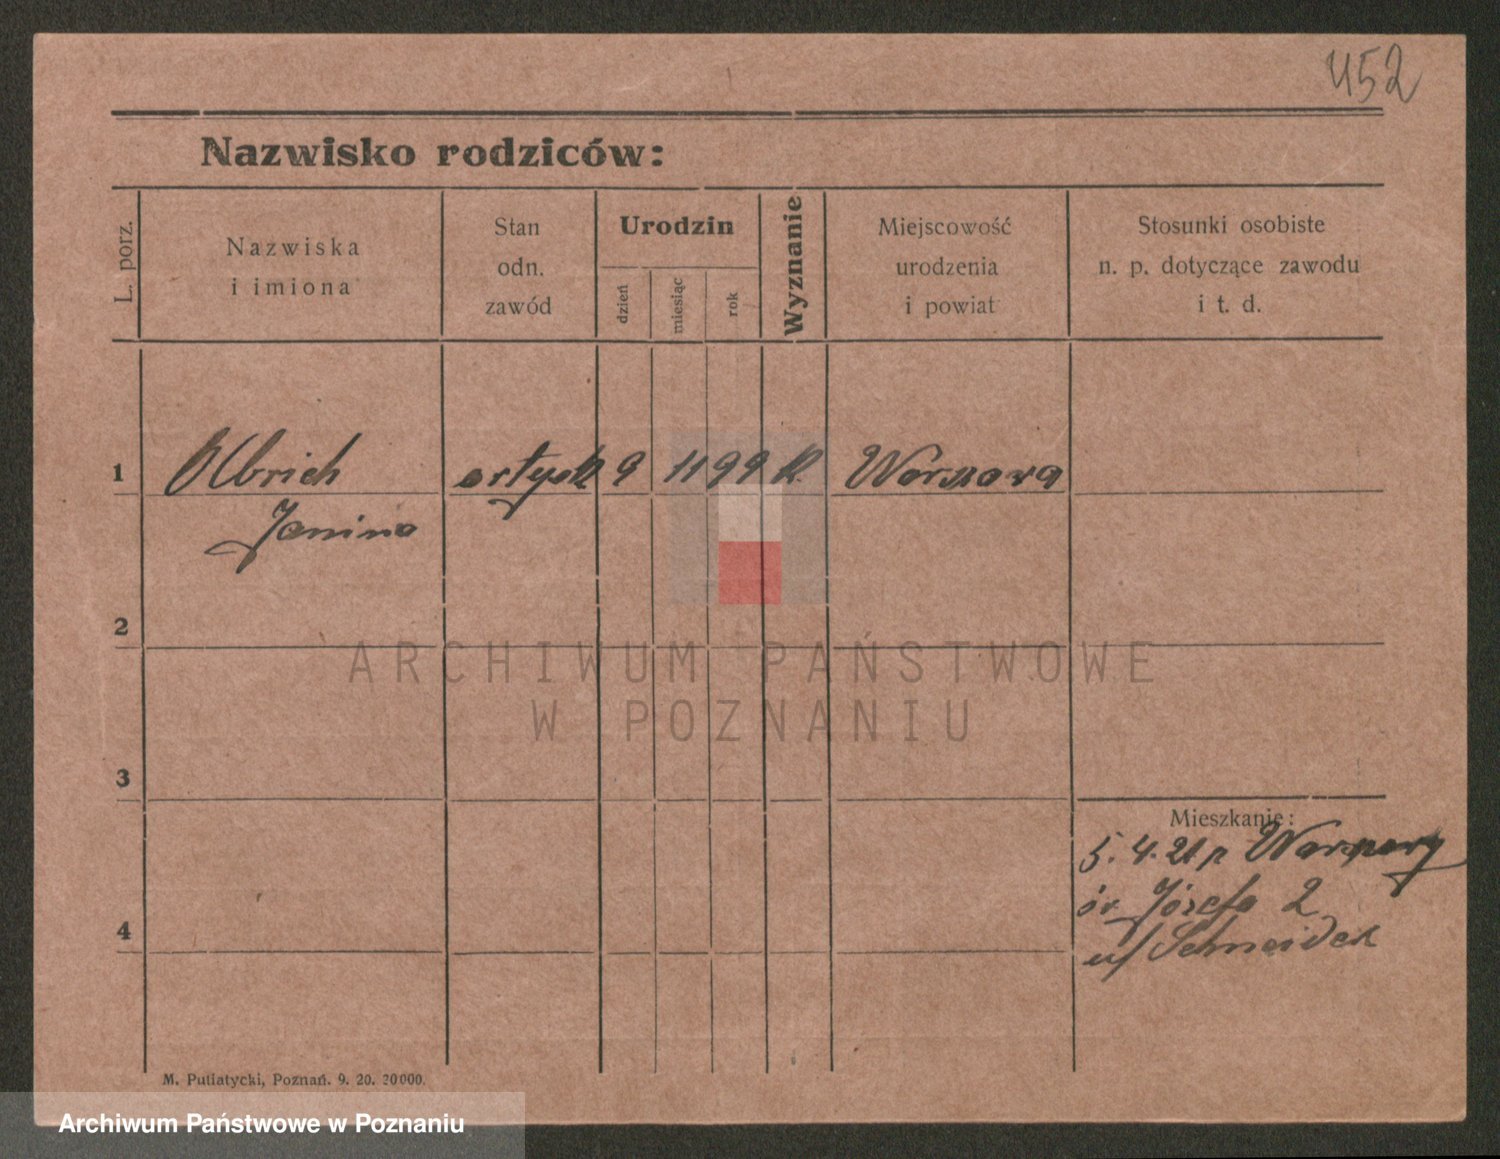 452
Nazwisko rodziców:
L. porz.
Nazwiska
i imiona
Stan
odn.
zawód
Urodzin
dzień
miesiąc
rok
Wyznanie
Miejscowość
urodzenia
i powiat
Stosunki osobiste
n. p. dotyczące zawodu
i t. d.
1
Olbrich artystk 9 11 99 k. Warszawa
Janina
2
3
4
Mieszkanie:
5. 4. 21 z Warszawy
św Józefa 2
u/ Schneider
M. Putiatycki, Poznań. 9. 20. 20000.
ARCHIWUM PAŃSTWOWE
W POZNANIU
Archiwum Państwowe w Poznaniu